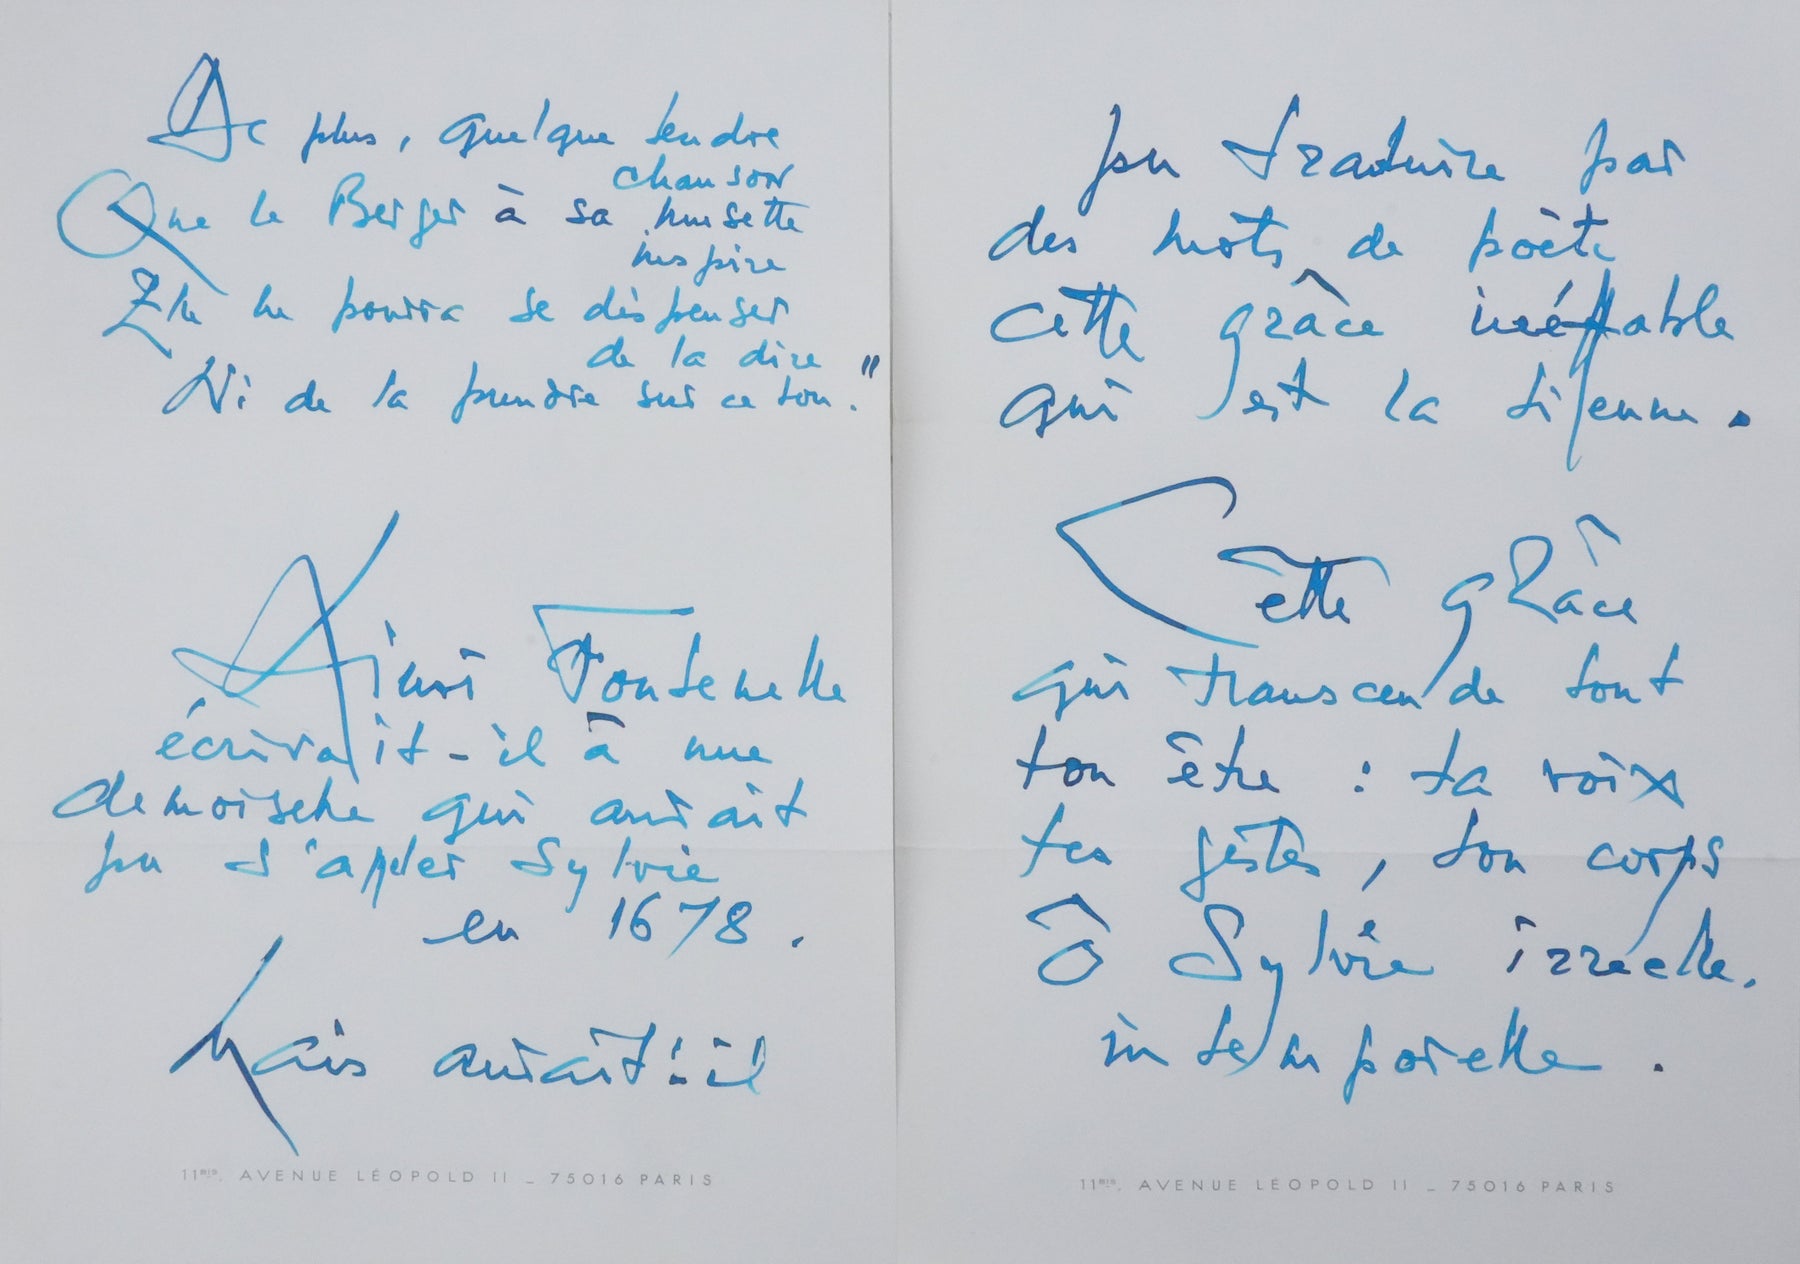 De plus, quelque tendre
chanson
Que le Berger à sa musette
inspire
Elle ne pourra se dispenser
de la dire
Ni de la prendre sur ce ton."
Ainsi Fontenelle
écrivait-il à une
demoiselle qui aurait
pu s'appeler Sylvie
en 1678.
Mais aurait-il
11BIS, AVENUE LÉOPOLD II _ 75016 PARIS
pu traduire par
des mots de poète
cette grâce inéffable
qui est la tienne.
Cette grâce
qui transcende tout
ton être : ta voix
tes gestes, ton corps
Ô Sylvie irréelle.
intemporelle.
11BIS, AVENUE LÉOPOLD II _ 75016 PARIS